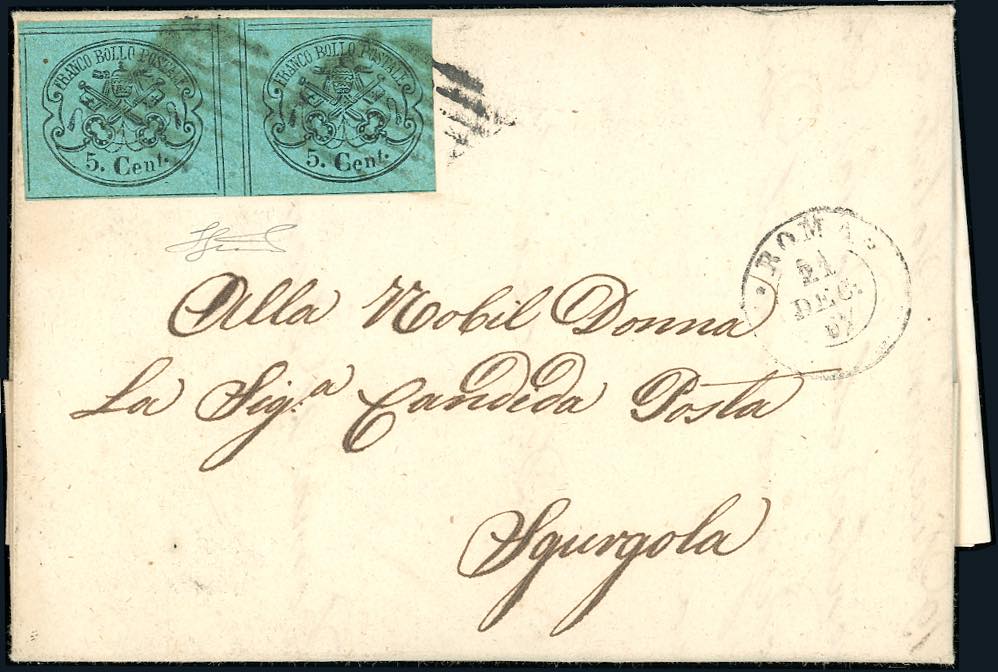 FRANCO BOLLO POSTALE
5. Cent.
FRANCO BOLLO POSTALE
5. Cent.
ROMA
21
DEC.
67
Alla Nobil Donna
La Sig.a Candida Posta
Sgurgola